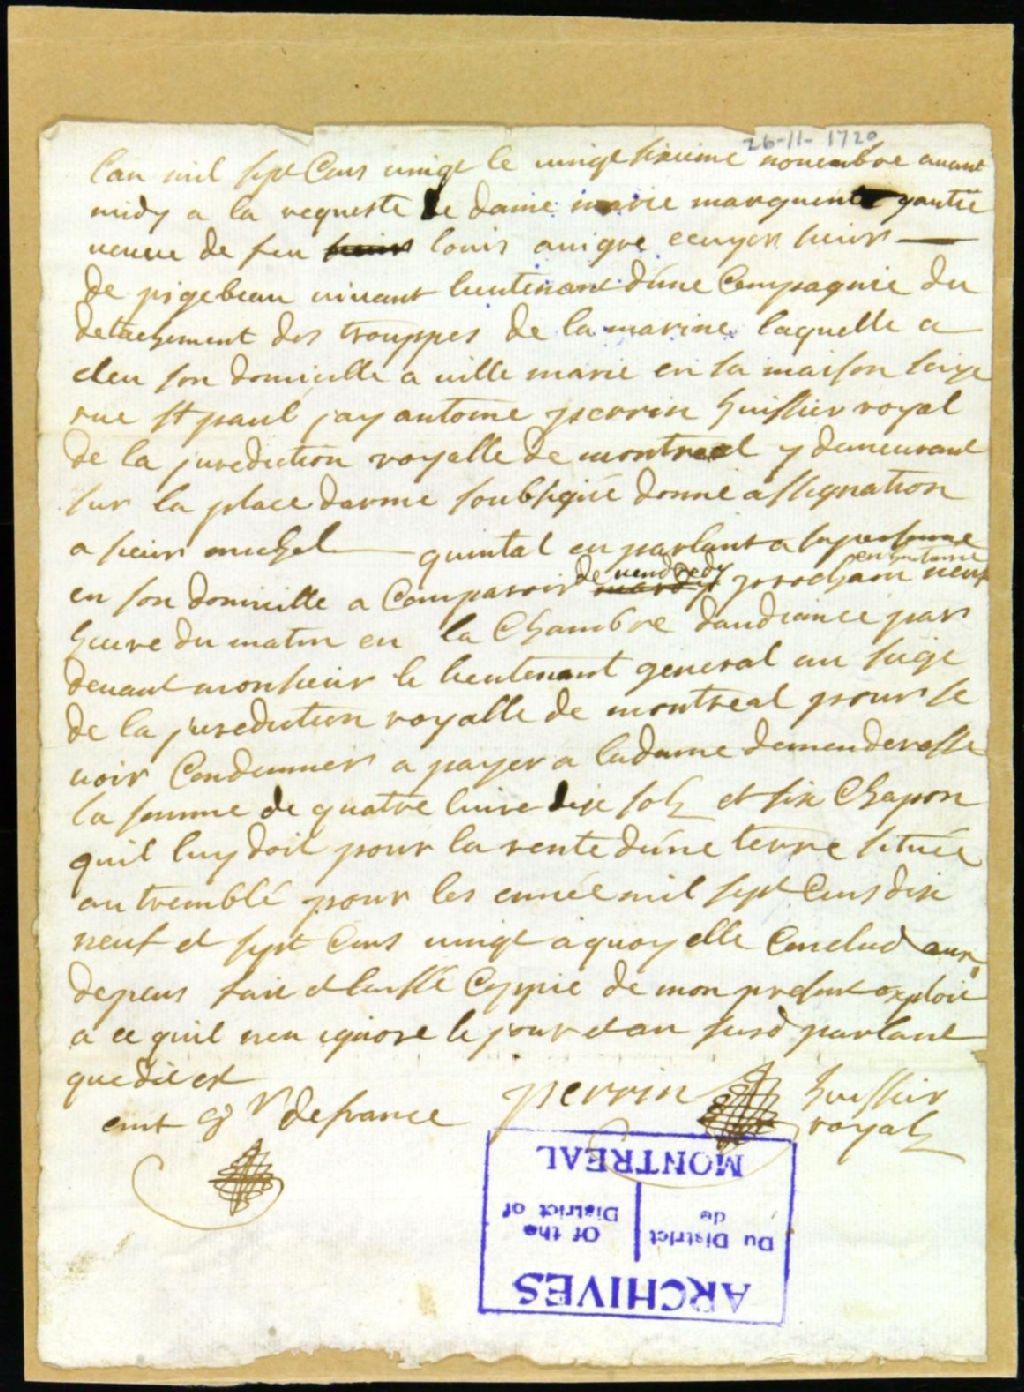 26-11-1720
Lan mil sept Cens vingt le vingt sixieme novembre avant
midy a la requeste de dame marie marguerite gautie
veuve de feu sieur louis avigre ecuyer sieur
de pigebeau vivant lieutenant d'une Compagnie du
detachement des trouppes de la marine laquelle a
eleu son domicille a ville marie en sa maison size
rue st paul jay antoine perrin huissier royal
de la jurediction royalle de montreal y demeurant
sur la place darme soubsigné donné assignation
a sieur michel quintal en parlant a sa personne
en son domicille a Comparoir mardy de vendredy prochain neuf
heure du matin en la Chambre daudiance par
devant monsieur le lieutenant general au siege
de la jurediction royalle de montreal pour se
voir Condemner a payer a ladame demanderesse
la somme de quatre livre dix sols et six Chapon
quil luy doit pour la rente d'une terre située
au tremblé pour les année mil sept Cens dix
neuf et sept Cens vingt a quoy elle Conclud aux
depens fait et laissé Coppie de mon present exploit
a ce quil nen ignore le jour et an susd parlant
que dit est
perrin huissier
royal
cont gr de france
ARCHIVES
Du District de
Of the District of
MONTREAL